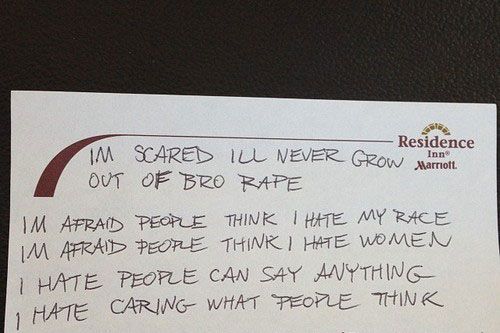 Residence
Inn®
Marriott
IM SCARED ILL NEVER GROW
OUT OF BRO RAPE
IM AFRAID PEOPLE THINK I HATE MY RACE
IM AFRAID PEOPLE THINK I HATE WOMEN
I HATE PEOPLE CAN SAY ANYTHING
I HATE CARING WHAT PEOPLE THINK